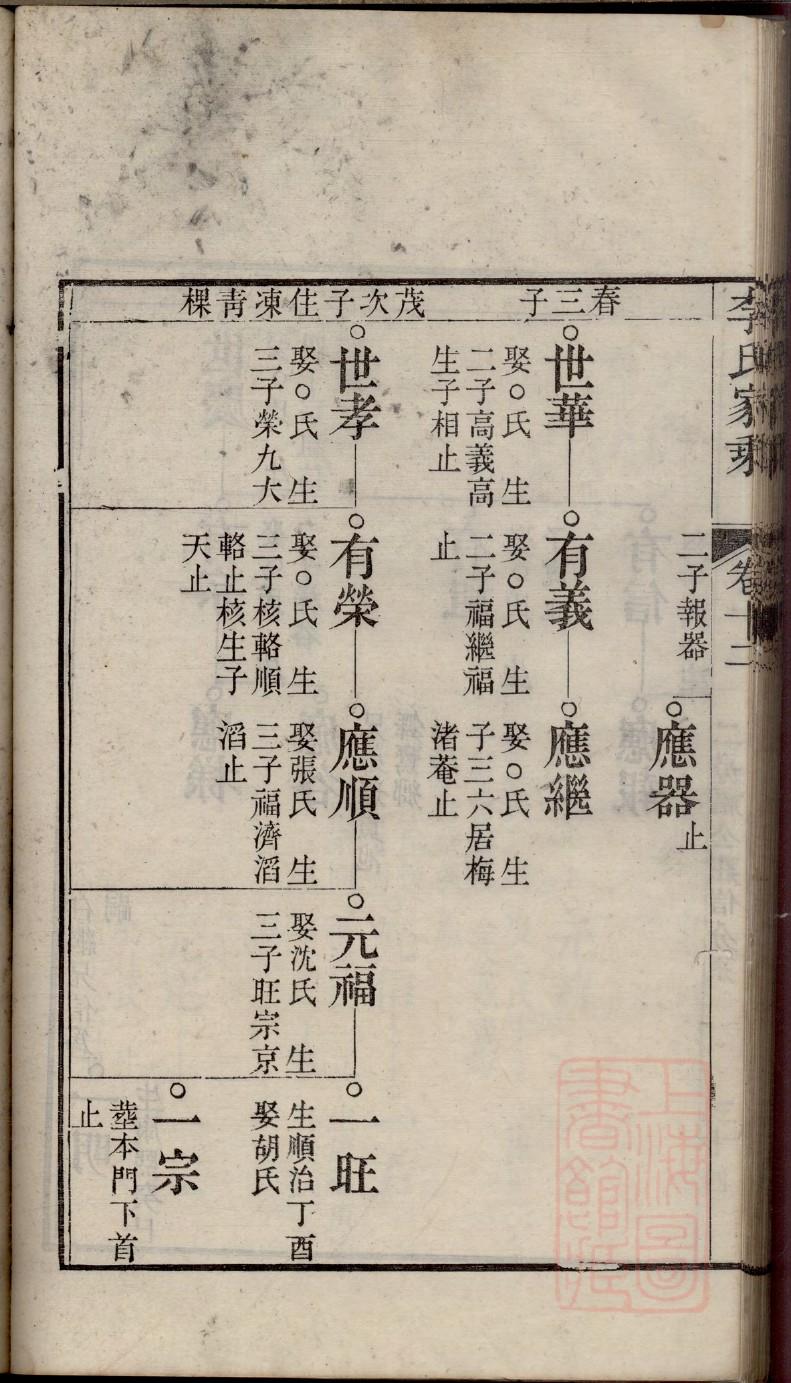 李氏家乘
卷十二
二子報器
應器
止
春三子
世華
娶○氏 生
二子高義高
生子相止
有義
娶○氏 生
二子福繼福
止
應繼
娶○氏 生
子三六居梅
渚菴止
茂次子住凍青棵
世孝
娶○氏 生
三子榮九大
有榮
娶○氏 生
三子核輅順
輅止核生子
天止
應順
娶張氏 生
三子福濟滔
滔止
元福
娶沈氏 生
三子旺宗京
一旺
生順治丁酉
娶胡氏
一宗
塟本門下首
止
上海圖
書館藏